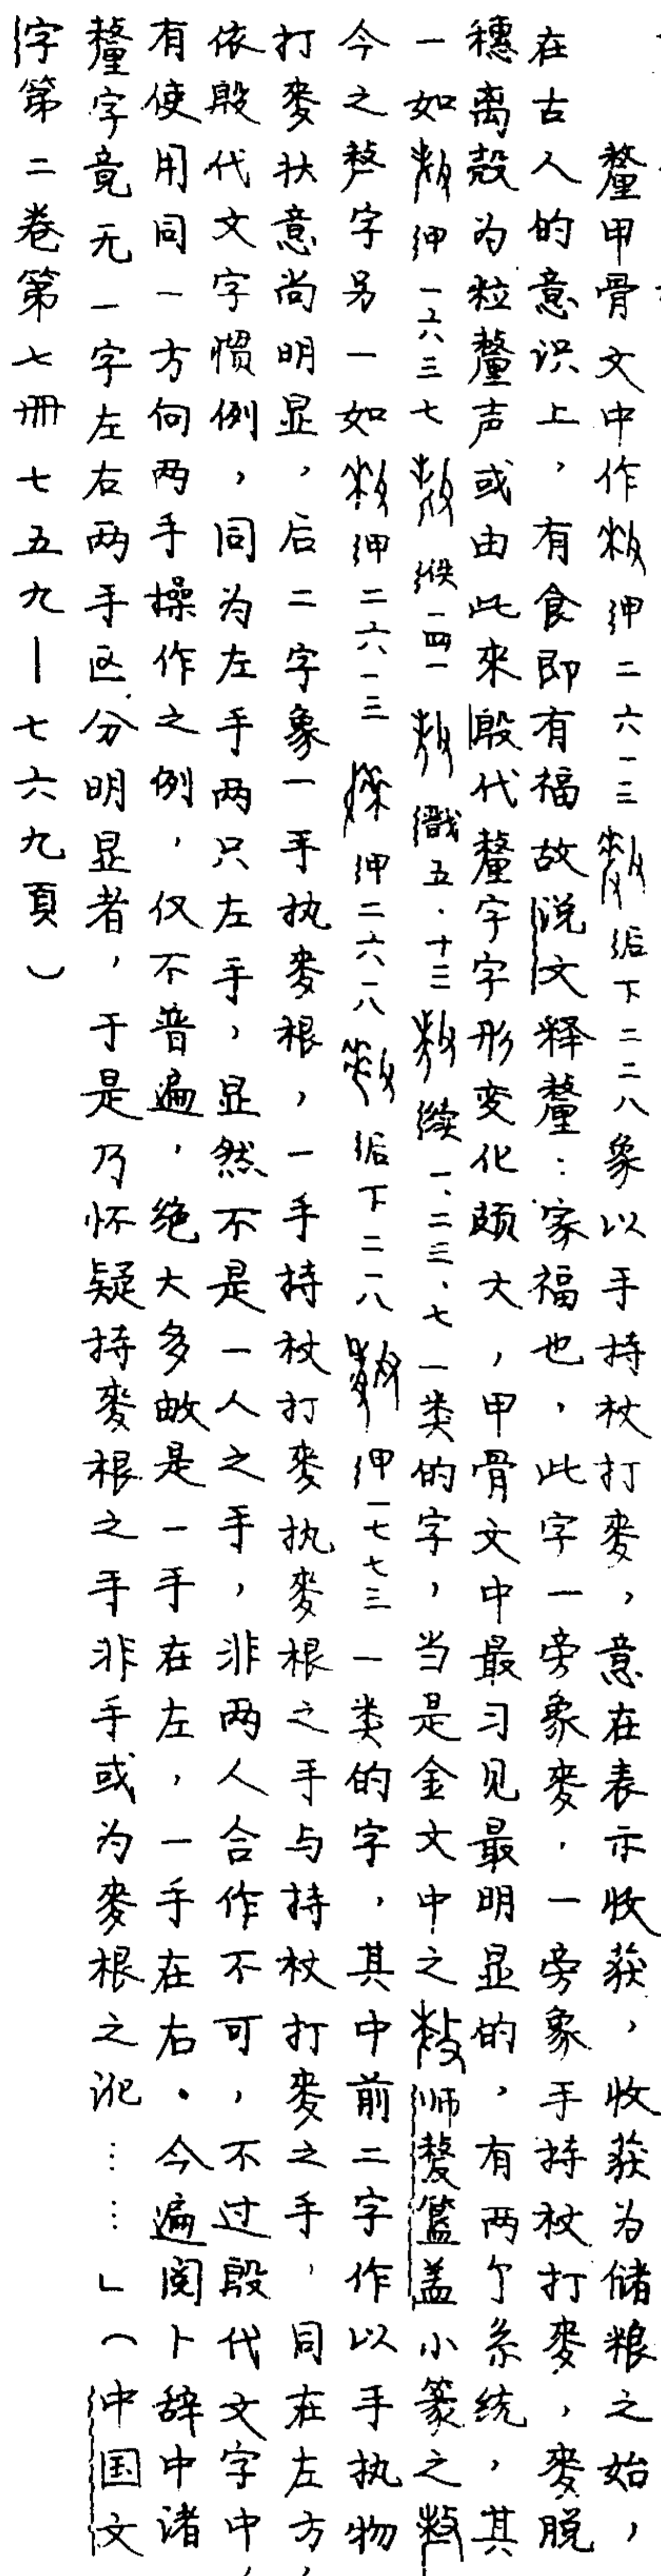 釐甲骨文中作 甲二六一三 后下二二八象以手持杖打麥，意在表示收获，收获为储粮之始，
在古人的意识上，有食即有福故说文释釐：家福也，此字一旁象麥．一旁象手持杖打麥，麥脱
穗离殼为粒釐声或由此來殷代釐字字形变化颇大，甲骨文中最习见最明显的，有两个系统，其
一如 甲一六三七 佚一四一 戬五．十三 续一、二三、七一类的字，当是金文中之 师嫠簋盖小篆之
今之嫠字另一如 甲二六一三 甲二六一八 后下二一八 甲一七七三一类的字，其中前二字作以手执物
打麥状意尚明显，后二字象一手执麥根，一手持杖打麥执麥根之手与持杖打麥之手，同在左方
依殷代文字惯例，同为左手两只左手，显然不是一人之手，非两人合作不可，不过殷代文字中
有使用同一方向两手操作之例，仅不普遍，绝大多是一手在左，一手在右。今遍阅卜辞中诸
釐字竟无一字左右两手区分明显者，于是乃怀疑持麥根之手非手或为麥根之讹……」（中国文
字第二卷第七冊七五九—七六九頁）